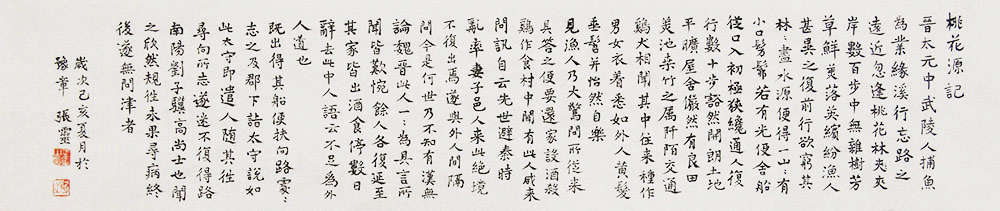 桃花源記
晉太元中武陵人捕魚
為業緣溪行忘路之
遠近忽逢桃花林夾
岸數百步中無雜樹芳
草鮮美落英繽紛漁人
甚異之復前行欲窮其
林〻盡水源便得一山〻有
小口髣髴若有光便舍船
從口入初極狹纔通人復
行數十步豁然開朗土地
平曠屋舍儼然有良田
美池桑竹之属阡陌交通
鷄犬相聞其中往來種作
男女衣着悉如外人黃髮
垂髫並怡然自樂
見漁人乃大驚問所從來
具答之便要還家設酒殺
鷄作食村中聞有此人咸來
問訊自云先世避秦時
亂率妻子邑人來此絕境
不復出焉遂與外人間隔
問今是何世乃不知有漢無
論魏晉此人一〻為具言所
聞皆歎惋餘人各復延至
其家皆出酒食停數日
辭去此中人語云不足為外
人道也
既出得其船便扶向路處〻
志之及郡下詣太守說如
此太守即遣人隨其往
尋向所志遂迷不復得路
南陽劉子驥高尚士也聞
之欣然規往未果尋病終
後遂無問津者
歲次己亥夏月於
豫章 張靈